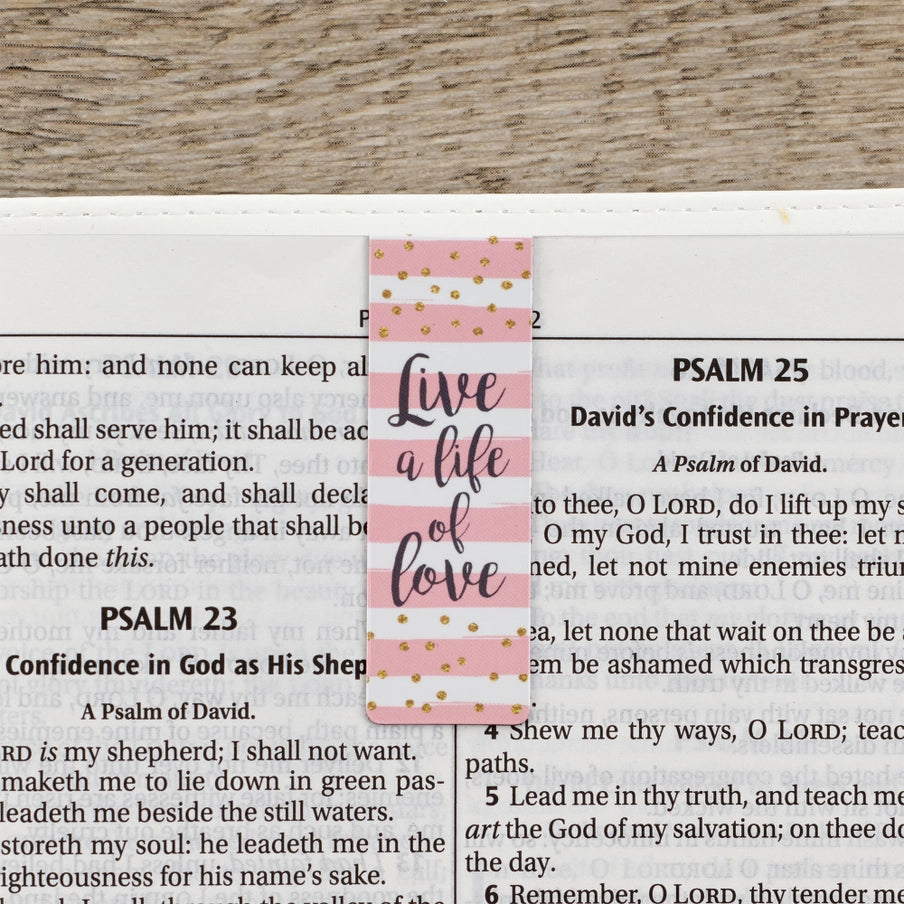 2
Live
a life
of
love
ore him: and none can keep
ed shall serve him; it shall be
Lord for a generation.
shall come, and shall
sness unto a people that shall
ath done this.
PSALM 23
Confidence in God as His
A Psalm of David.
RD is my shepherd; I shall not want.
maketh me to lie down in green pas-
leadeth me beside the still waters.
storeth my soul: he leadeth me in the
ighteousness for his name's sake.
PSALM 25
David's Confidence in Prayer
A Psalm of David.
to thee, O LORD, do I lift up my
O my God, I trust in thee: let
med, let not mine enemies
ea, let none that wait on thee be
em be ashamed which transgress
4 Shew me thy ways, O LORD; teac
paths.
5 Lead me in thy truth, and teach me
art the God of my salvation; on thee do
the day.
6 Remember, O LORD, thy tender